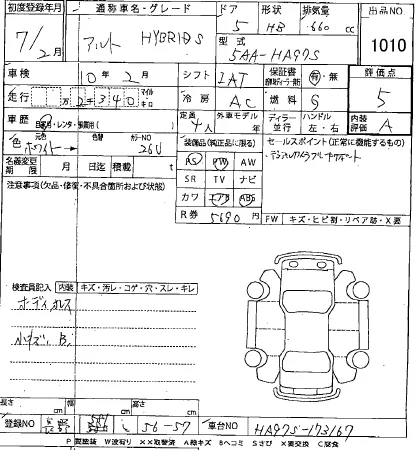 初度登録年月 通称車名・グレード ドア 形状 排気量 出品NO
7/2月 アルト HYBRID S 5 HB 660 cc 1010
型式
5AA-HA97S
車検 10年2月 シフト IAT 保証書 有・無 評価点
走行 万 2 3 4 0 マイル キロ 冷房 AC 燃料 G 5
車歴 自家用・レンタ・ 定員 4人 外車モデル 年 ディーラー・並行 ハンドル 左・右 内装評価 A
色 元色 ホワイト 色替 カラーNO 26U 装備品(純正品に限る) セールスポイント(正常に機能するもの)
名義変更期限 月 日迄 積載 t AS PW AW
注意事項(欠品・修復・不具合箇所および状態) SR TV ナビ
カワ エアB ABS
R券 5690 円 FW キズ・ヒビ割・リペア跡・X要
検査員記入 内装 キズ・汚レ・コゲ・穴・スレ・キレ
小キズ B
長さ cm 幅 cm 高さ cm
登録NO 長野 581 56-57 車台NO HA97S-173167
P 要塗装 W波有り XX取替済 A線キズ Bヘコミ Sさび X要交換 C腐食